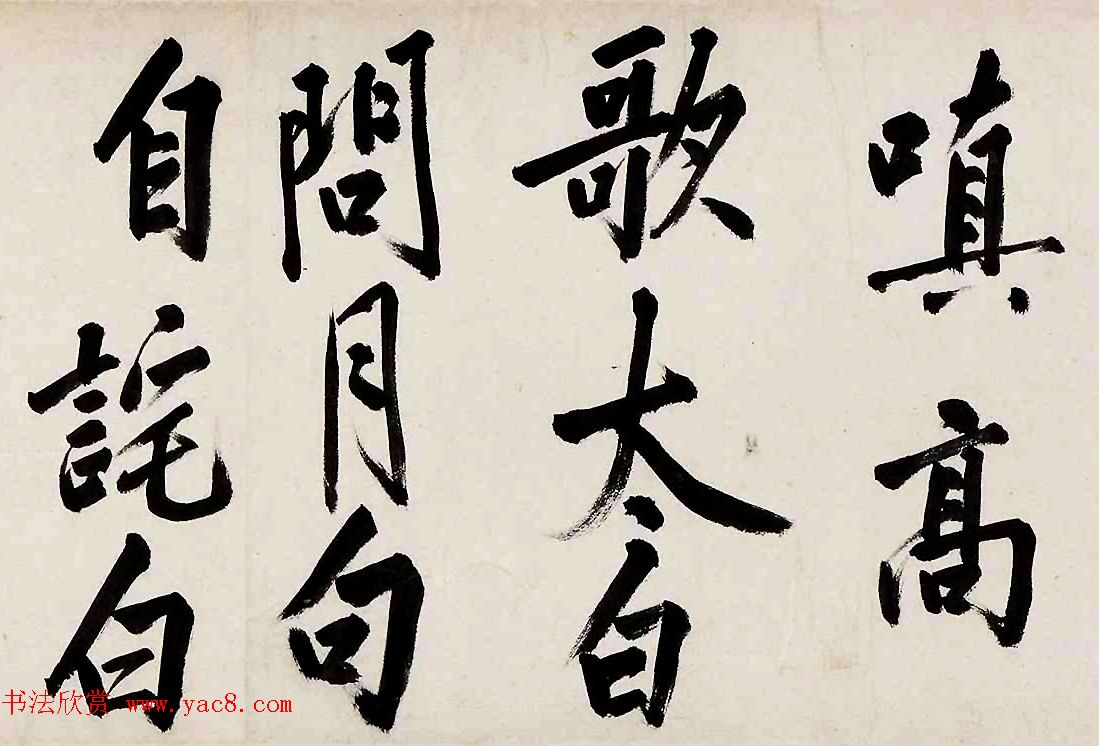 嗔高
歌太白
問月句
自詫白
书法欣赏 www.yac8.com